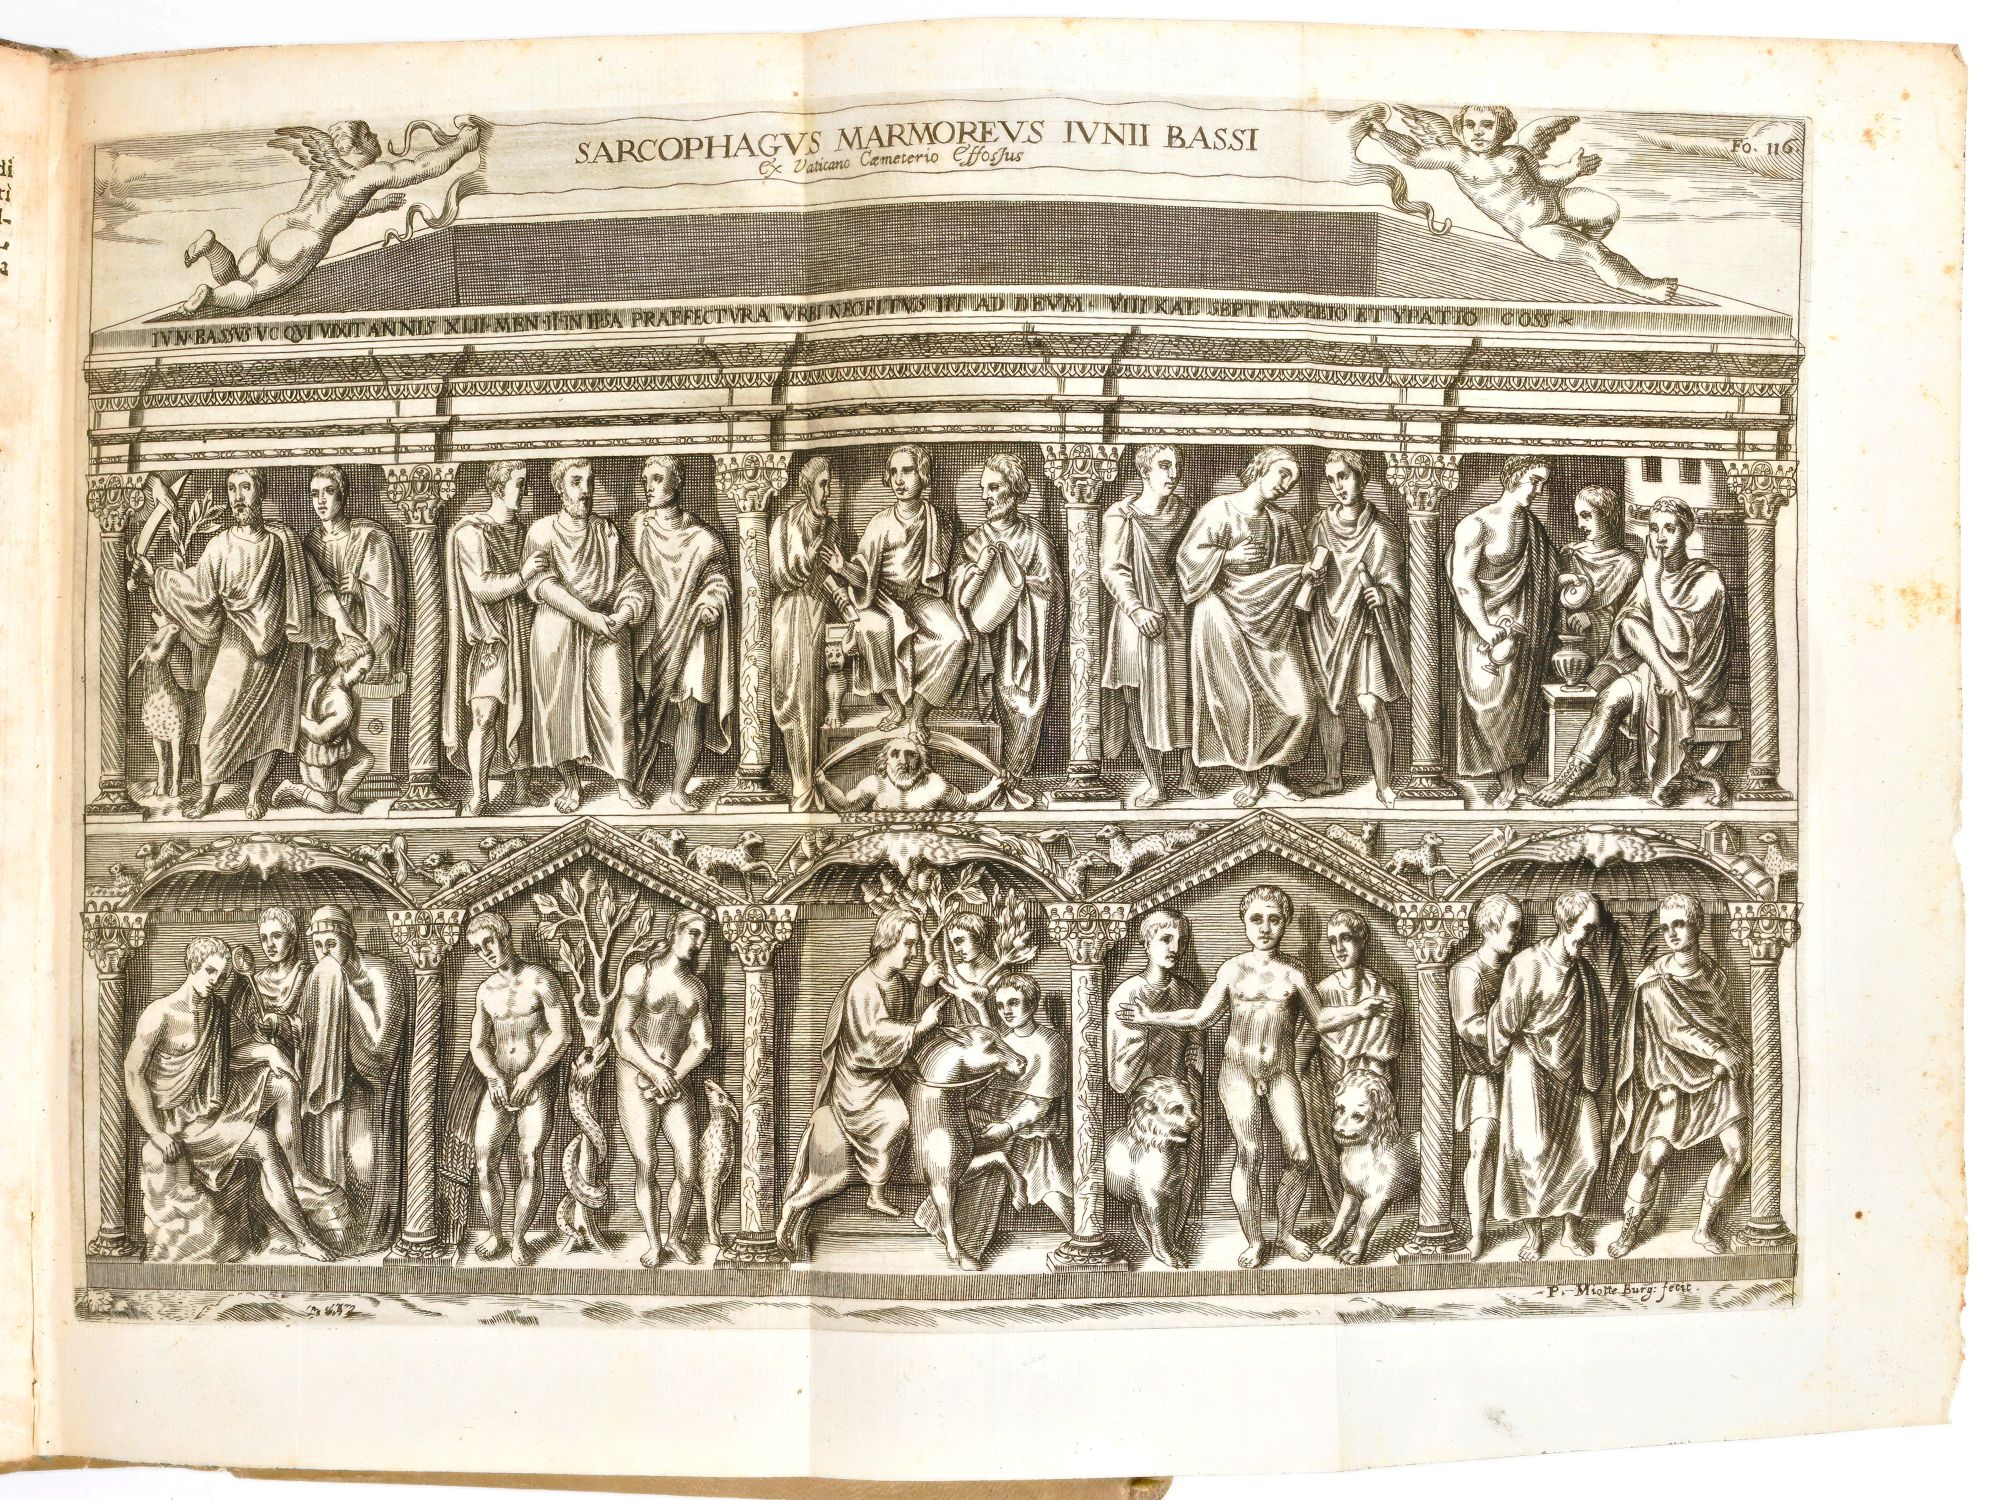 SARCOPHAGVS MARMOREVS IVNII BASSI
Ex Vaticano Cœmeterio Effossus
Fo. 116.
IVN·BASSVS VC QVI VIXIT ANNIS XLII·MEN·II·IN IPSA PRAEFECTVRA VRBI NEOFITVS IIT AD DEVM · VIII KAL SEPT EVSEBIO ET YPATIO COSS
P. Miotte Burg: fecit.
di